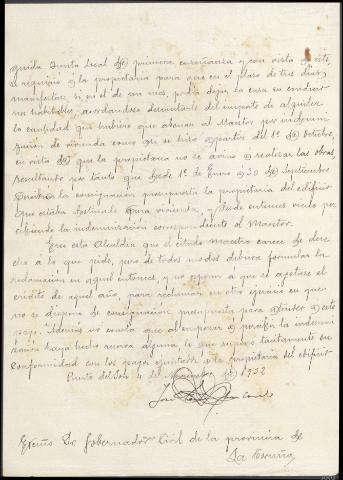 guida Junta Local de primera enseñanza y con vista de este,
se requirió a la propietaria para que en el plazo de tres dias,
manifestase si en el de un mes, podia dejar la casa en condicio
nes habitables, acordandose descontarle del importe de alquiler
la cantidad que hubiere que abonar al Maestro por indemni
zación de vivienda como que se hizo a partir del 1º de Octubre,
en vista de que la propietaria no se avino a realizar las obras,
resultando por tanto que desde 1º de Enero a 30 de Septiembre
percibió la consignación presupuesta la propietaria del edificio
que estaba destinado para vivienda, y desde entonces viene per
cibiendo la indemnización correspondiente al Maestro.
Cree esta Alcaldia que el citado maestro carece de dere
cho a lo que pide, pero de todos modos debiera formular la
reclamación en aquel entonces, y no esperar a que se agotase el
crédito de aquel año, para reclamar en otro ejercicio en que
no se disponia de consignación presupuesta para atender a este
pago. Además no consta que al empezar a percibir la indemni
zación haya hecho reserva alguna, lo que supone tacitamente su
conformidad con los pagos efectuados a la propietaria del edificio
Puerto del Son 4 de 1932
José
Excmo Sr. Gobernador Civil de la provincia de
La Coruña